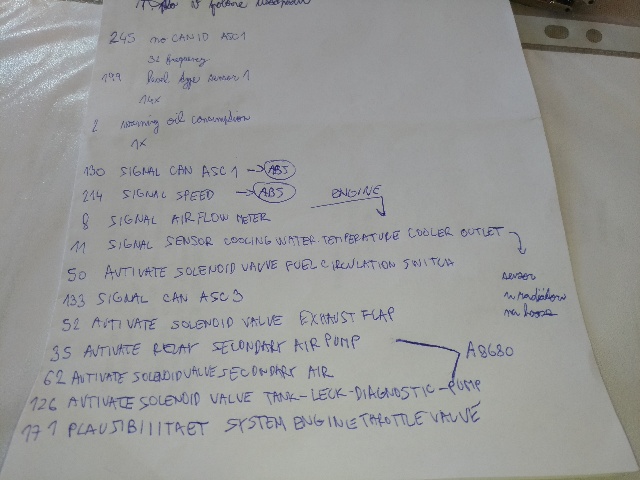 v
245 no CAN ID ASC1
32 frequency
199
14x
2 warning oil consumption
1x
130 SIGNAL CAN ASC 1 → ABS
214 SIGNAL SPEED → ABS
ENGINE
8 SIGNAL AIRFLOW METER
11 SIGNAL SENSOR COOLING WATER-TEMPERATURE COOLER OUTLET
50 AVTIVATE SOLENOID VAVVE FUEL CIRCULATION SWITCH
sensor
133 SIGNAL CAN ASC 3
52 AVTIVATE SOLENOID VALVE EXHAUST FLAP
35 AVTIVATE RELAY SECONDARY AIR PUMP
A8680
62 AVTIVATE SOLENOID VALVE SECONDARY AIR
126 AVTIVATE SOLENOID VALVE TANK-LECK-DIAGNOSTIC-PUMP
171 PLAUSIBIIITAET SYSTEM ENGINE THROTTLE VALVE